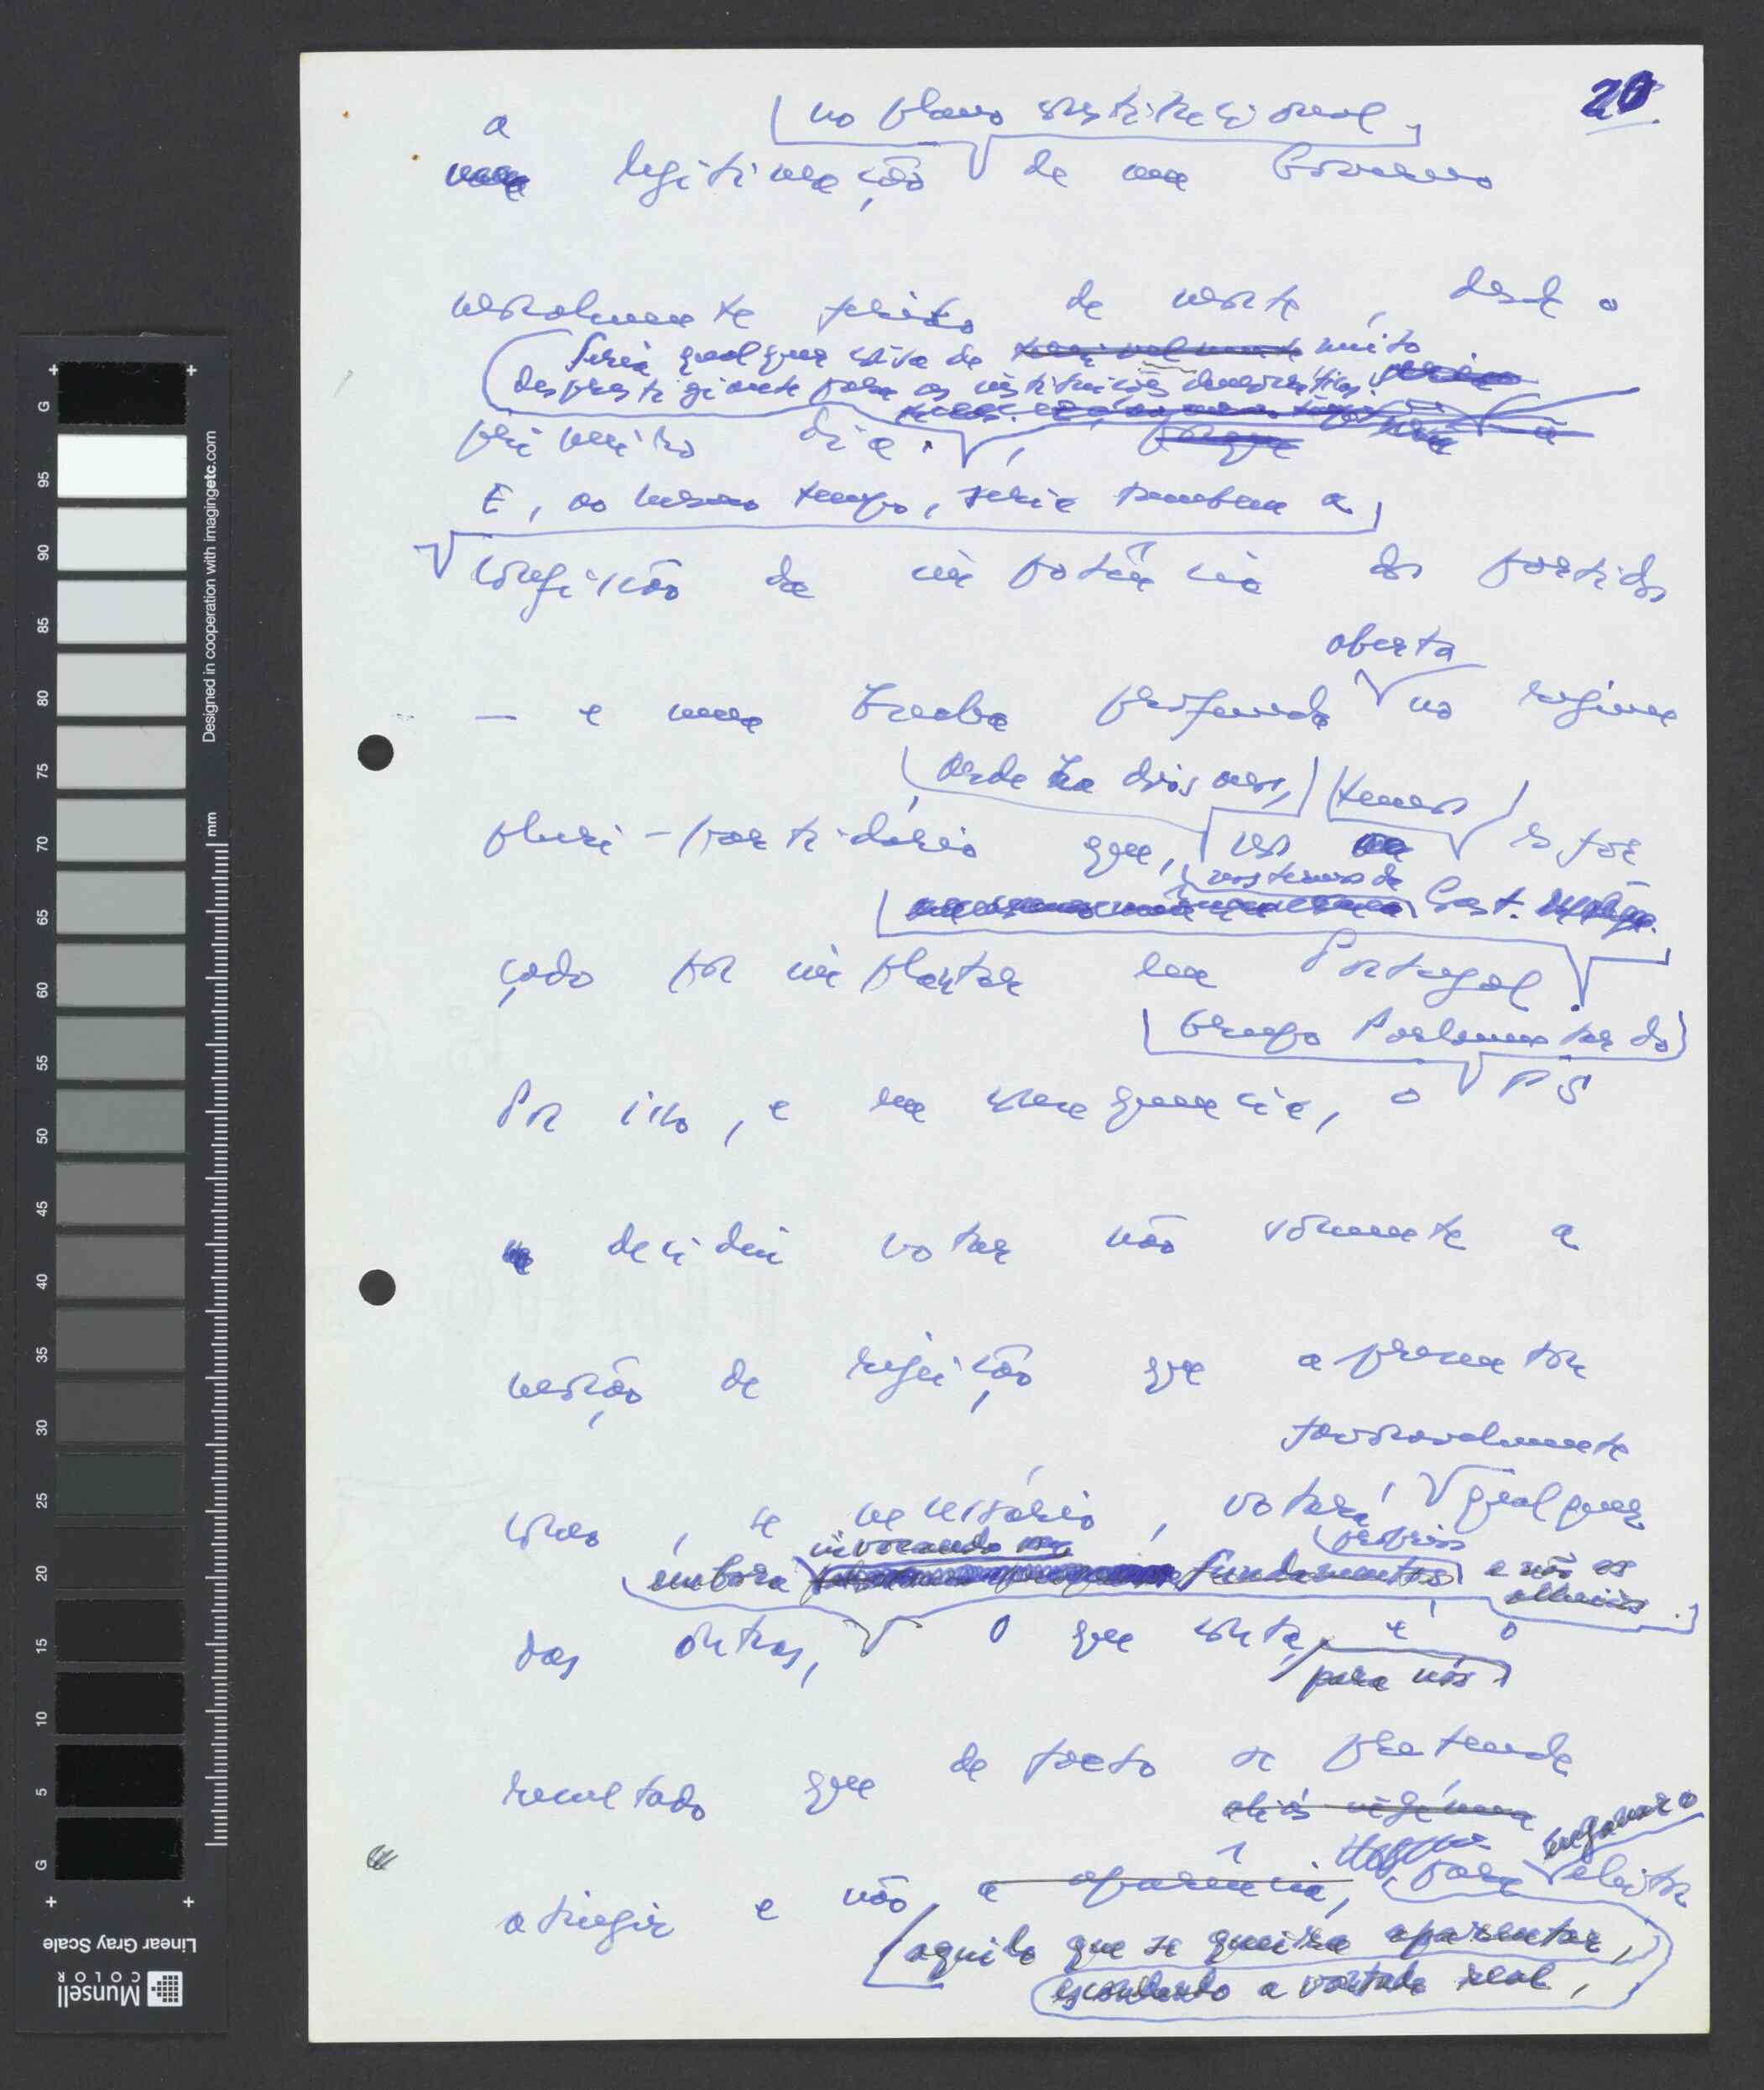 20
no plano constitucional
a
legitimação de um Governo
moralmente ferido de morte, desde o
Seria qualquer coisa de muito
desprestigiante para as instituições democráticas.
primeiro dia.
E, ao mesmo tempo, seria também a
confissão da impotência dos partidos
aberta
— e uma brecha profunda no regime
desde há dois anos, temos
pluri-partidário que, nos esfor
nos termos da Const.
çado por implantar em Portugal.
Grupo Parlamentar do
Por isso, e em consequência, o PS
decidiu votar não sómente a
moção de rejeição que apresentou
favoravelmente
como, se necessário, votará qualquer
invocando os próprios
embora fundamentos e não os
alheios.
das outras, O que conta, é o
para nós
resultado que de facto se pretende
aliás ninguém
enganar o
atingir e não a aparência, para eleitor
aquilo que se queira aparentar,
escondendo a vontade real,
G
95
90
85
80
75
70
65
60
55
50
45
40
35
30
25
20
15
10
5
G
mm
Designed in cooperation with imagingetc.com
Linear Gray Scale
Munsell
COLOR